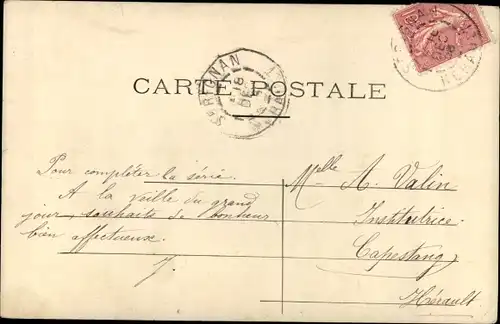 CARTE POSTALE
SÉRIGNAN
HÉRAULT
Pour compléter la série.
A la veille du grand
jour, souhaits de bonheur
bien affectueux.
J.
Melle A. Valin
Institutrice.
Capestang
Hérault